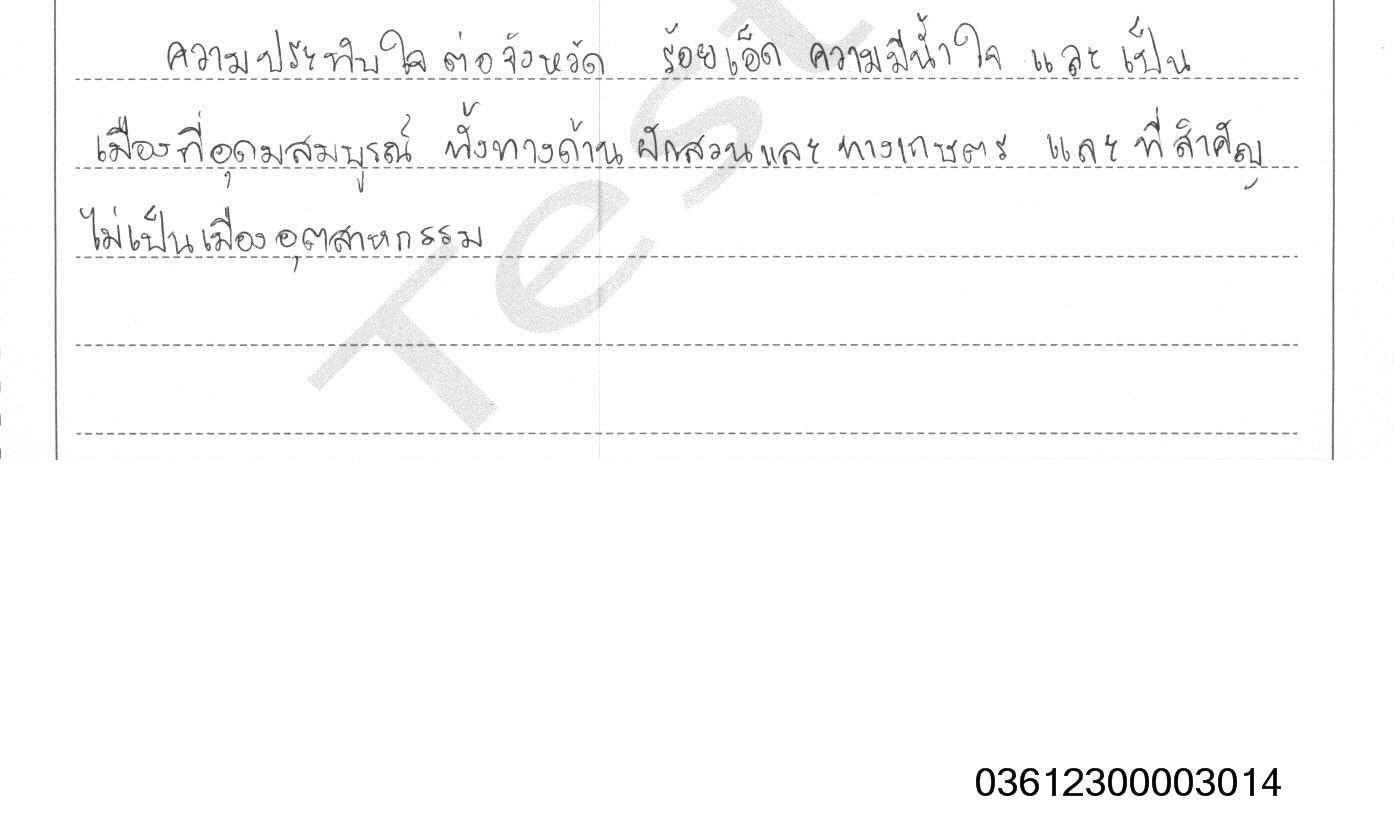 ความประทับใจต่อจังหวัด ร้อยเอ็ด ความมีน้ำใจ และ เป็น
เมืองที่อุดมสมบูรณ์ ทั้งทางด้านผักสวนและ ทางเกษตร และ ที่สำคัญ
ไม่เป็นเมืองอุตสาหกรรม
Test
03612300003014